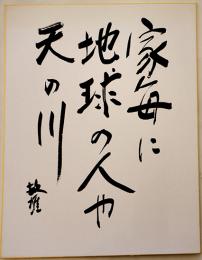 家毎に
地球の人や
天の川